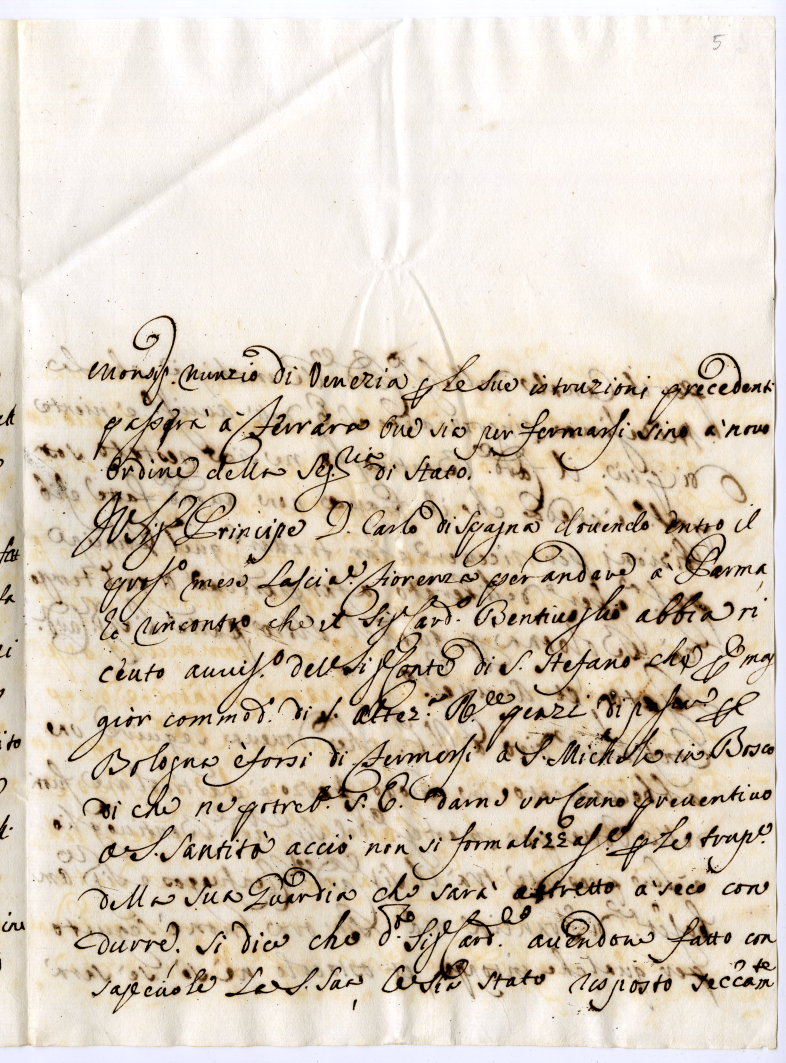 5
Monsig. nunzio di Venezia p le sue istruzioni precedenti
passerà à Ferrara ove sia per fermarsi sino à novo
Ordine della Seg.ria di Stato.
Il Sig.r Principe D. Carlo di Spagna dovendo entro il
pros.o mese lasciar Fiorenza per andare à Parma,
hò rincontro che il Sig. Card. Bentivoglio abbia ri
cevuto avviso del Sig. Conte di S. Stefano che p mag
gior commod. di S. Altez. R.le penzi di passare p
Bologna è forsi di fermarsi à S. Michele in Bosco
di che ne potreb. S. E. darne un cenno preventivo
à S. Santità acciò non si formalizzasse p le trup.
della sua Guardia che sarà astretto à seco con
durre. si dice che d.to Sig. Card.le avendone fatto con
sapevole La S. Sua le sia stato risposto seccam.te